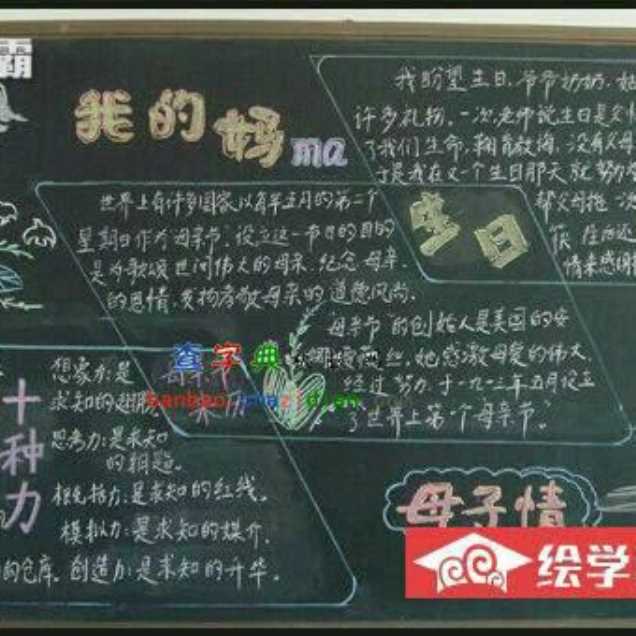 霸
我的妈ma
世界上有许多国家以每年五月的第二个
星期日作为母亲节,设立这一节日的目的
是为歌颂世间伟大的母亲,纪念母亲
的恩情,发扬孝敬母亲的道德风尚。
母亲节的创始人是美国的安
她感激母爱的伟大,
经过努力于一九一三年五月设立
了世界上第一个母亲节。
我盼望生日,爷爷奶奶,
许多礼物。一次,老师说生日是父
了我们生命,
没有父母
于是我在又一个生日那天就努力
帮父母拖
情来感谢
生日
查字典
十种力
想象力:是
求知的翅膀
思考力:是求知
的钥匙。
概括力:是求知的红线。
模拟力:是求知的媒介。
的仓库。创造力:是求知的升华。
母子情
绘学